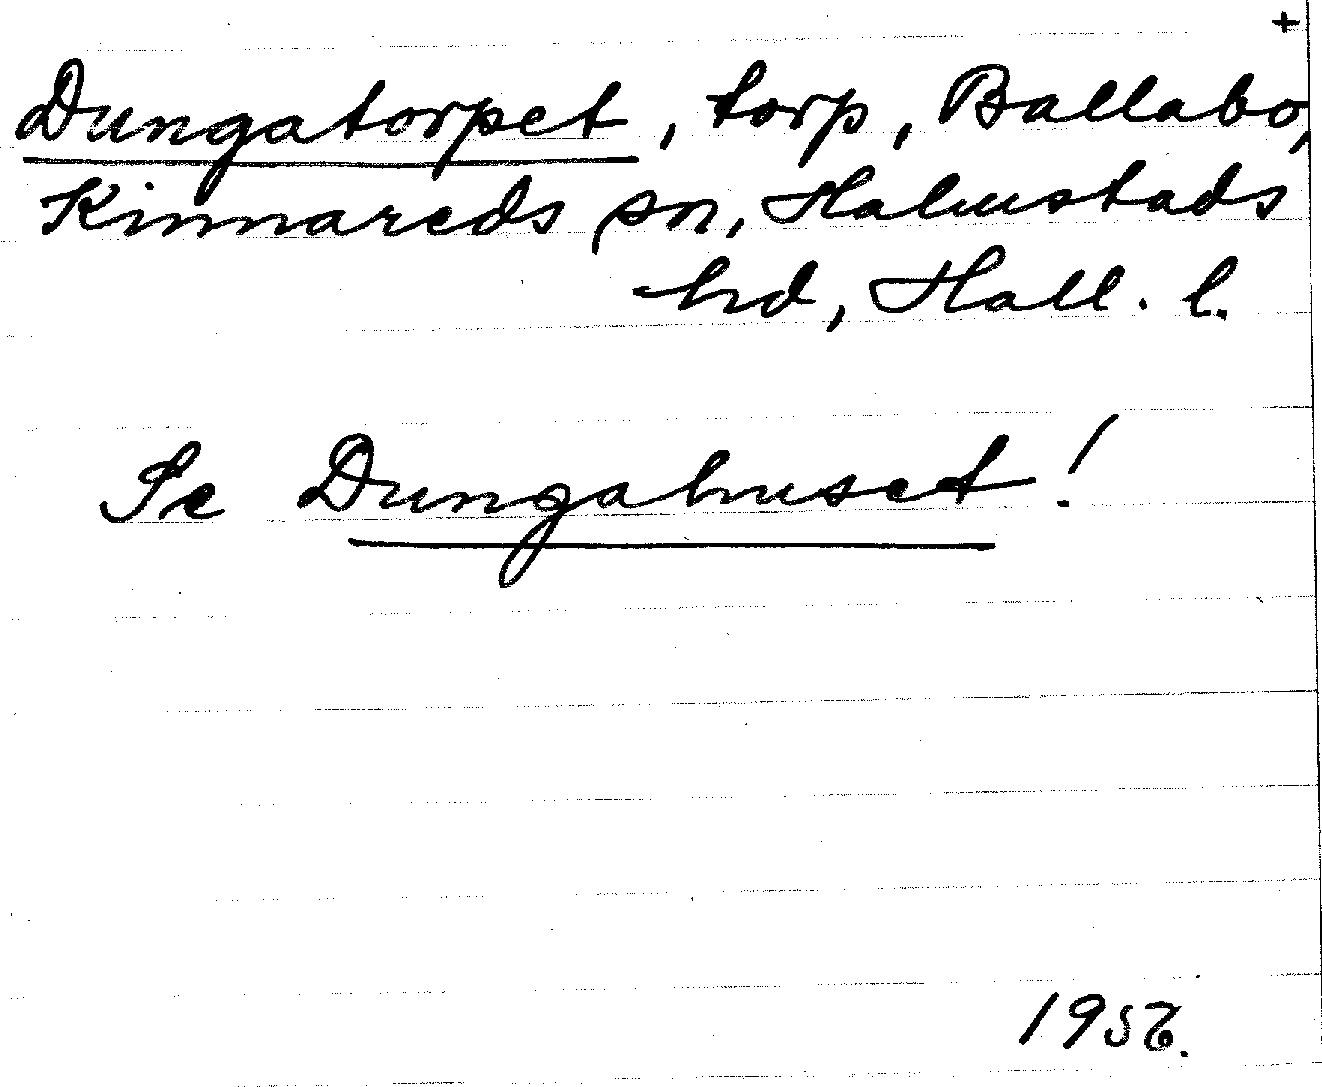 +
Dungatorpet, torp, Ballabo,
Kinnareds sn, Halmstads
hd, Hall. l.
Se Dungahuset!